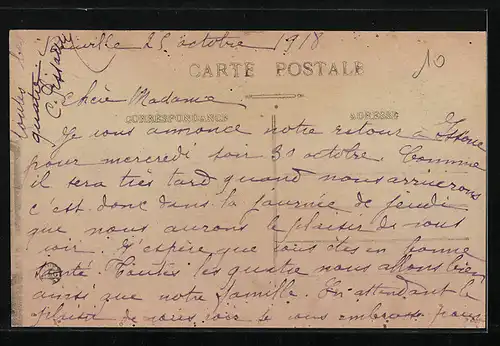 25 octobre 1918
10
CARTE POSTALE
Chère Madame
CORRESPONDANCE
ADRESSE
Je vous annonce notre retour à
pour mercredi soir 30 octobre. Comme
il sera très tard quand nous arriverons
c'est donc dans la journée de jeudi
que nous aurons le plaisir de vous
voir. J'espère que vous êtes en bonne
santé Toutes les quatre nous allons bien
ainsi que notre famille. En attendant le
plaisir de vous voir je vous embrasse pour
toutes les
quatre
C.